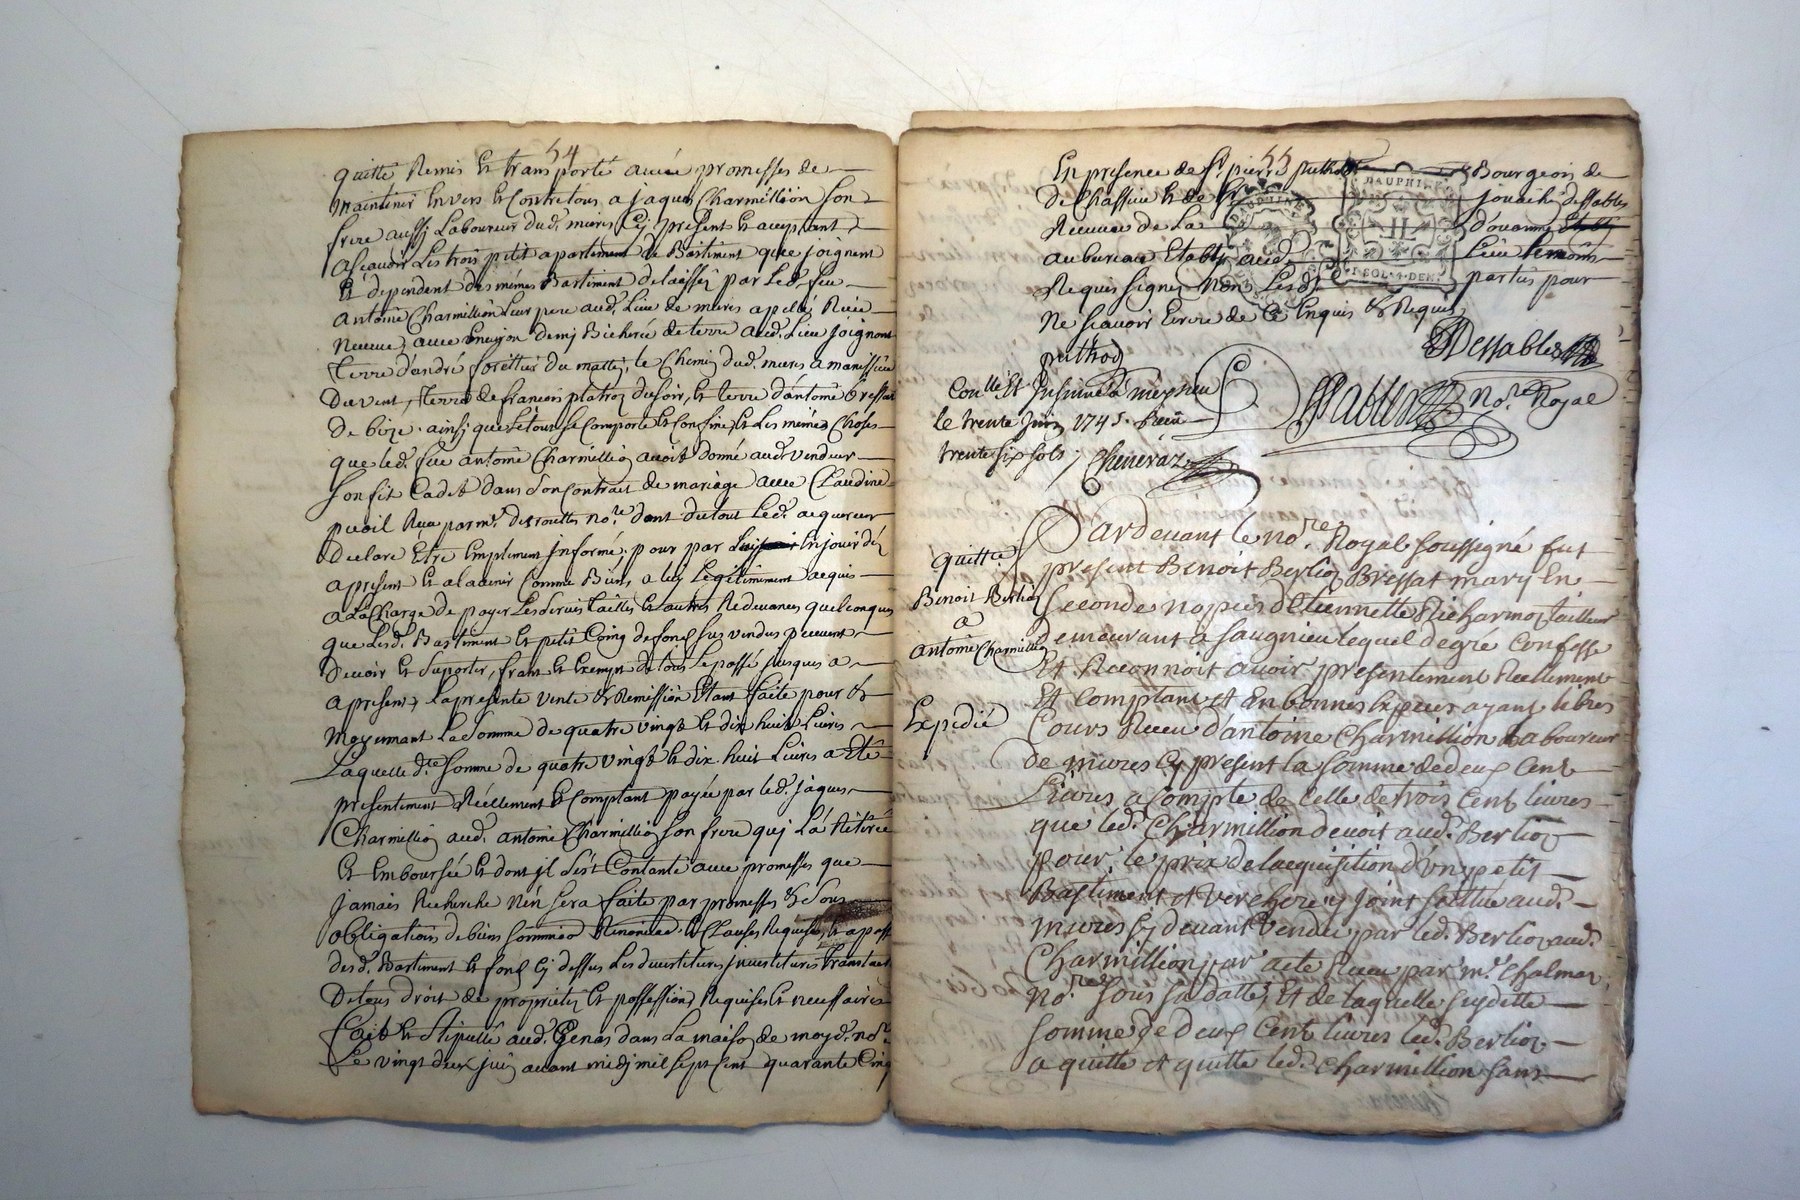 54
quitte Remis et transporté avec promesses de
maintenir Envers et Contre tous a jaques Charmillion son
frere aussy Laboureur dud. mures Cy present et acceptant
ascavoir Les trois petit apartiment de Bastiment qui se joignent
et dependent des mémes Bastiment delaissés par Led. feu
antoine Charmillion Leur pere aud. Lieu de mures apellé
neuve, avec Environ demy Bicherée de terre aud. Lieu joignant
terre d'andré forestier du matin, le Chemin dud. mures a
Du vent, terre de francois platroz du soir, et terre d'antoine
de bize. ainsy que Le tout se Comporte et Confine, et Les mémes Choses
que led. feu antoine Charmillion avoit donné aud. vendeur
son fils Cadet dans son Contrat de mariage avec Claudine
Reçu par me. desrouttes nore. dont du tout Led. acquereur
declare Etre amplement informé, pour par Luy En jouir dez
a present et a l'advenir Comme Biens a luy Legitimement acquis
a La Charge de payer Les servis tailles et autres Redevances quelconques
que Lesd. Bastiment et petit Coing de fond sus vendus peuvent
devoir et suporter, franc et Exempt de tous Le passé jusques a
a present, La presente vente et Remission Etant faite pour et
moyennant La somme de quatre vingt et dix huit Livres
Laquelle de. somme de quatre vingt et dix huit Livres a Eté
presentement Réellement et Comptant payée par led. jaques
Charmillion aud. antoine Charmillion son frere quj La Retirée
et Emboursée et dont jl s'est Contanté avec promesses que
jamais Recherche n'en sera faite par promesses et sous
obligations de biens Renonciaon. et Clauses Requises, et a
desd. Bastiment et fond Cy dessus Les devestitures jnvestitures
De tous droit de proprieté et possession, Requises et necessaires
fait et stipullé aud. Genas dans La maison de moyd. nore.
Le vingt deux juin avant midj mil sept cent quarante Cinq
55
En presence de sr. pierre puthod Bourgeois de
De Chassieu et de sr. joachin dessables
Receveur de La d'ouanne
au bureau Etably aud. Lieu temoins
Requis signés non Lesd. partis pour
ne scavoir Ecrire de Ce Enquis et Requis
Dessables
puthod
Sablier nore. Royal
Conllé Et Insinué à meyzieu
le trente Juin 1745. Recu
trente six sols,
DAUPHINE
DAUPHINE
1 SOL 4 DEN.
Pardevant le nore. Royal soussigné fut
quittce.
Benoit Berlioz
a
antoine Charmillion
Expedié
present Benoit Berlioz Bressat mary En
secondes nopces d'Etiennette Richarmoz tailleur
demeurant a saugnieu lequel de gré Confesse
Et Reconnoit avoir presentement Reellement
Et Comptant et En bonnes Espèces ayant libres
Cours Receu d'antoine Charmillion Laboureur
de mures Cy present la somme de deux Cent
Livres a Compte de Celle de trois Cent livres
que led. Charmillion devoit aud. Berlioz
pour le prix de lacquisition d'un petit
Bastiment et verchere y joint scittué aud.
mures Cy devant vendu par led. Berlioz aud.
Charmillion par acte Receu par me. Chalmaz
nore. sous sa datte, Et de laquelle susditte
somme de deux Cent livres led. Berlioz
a quitte et quitte led. Charmillion sans